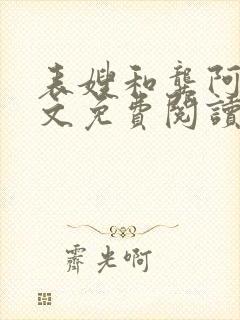 表嫂和龔阿
文免費閱讀
霽光啊